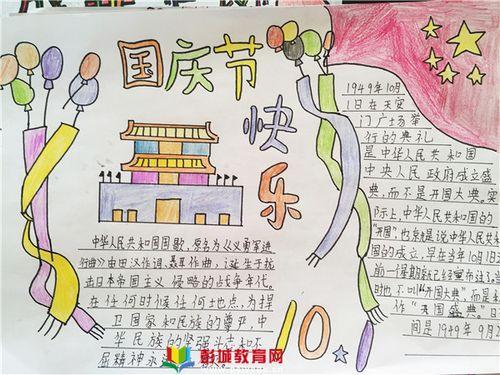 国庆节
快
乐
1949年10月
1日在天安
门广场举
行的典礼
是中华人民共和国
中央人民政府成立盛
典,而不是开国大典。实
际上,中华人民共和国的
"开国"也就是说中华人民共和
国的成立,早在当年10月1日
前一星期就已经宣布过了。当
时也不叫"开国大典",而是
作"开国盛典"。
间是1949年9月2
中华人民共和国国歌,原名为《义勇军进
行曲》由田汉作词、聂耳作曲,诞生于抗
击日本帝国主义侵略的战争年代。
在任何时候任何地点,为捍
卫国家和民族的尊严,中
华民族的坚强斗志和不
屈精神永
10.1
彭城教育网